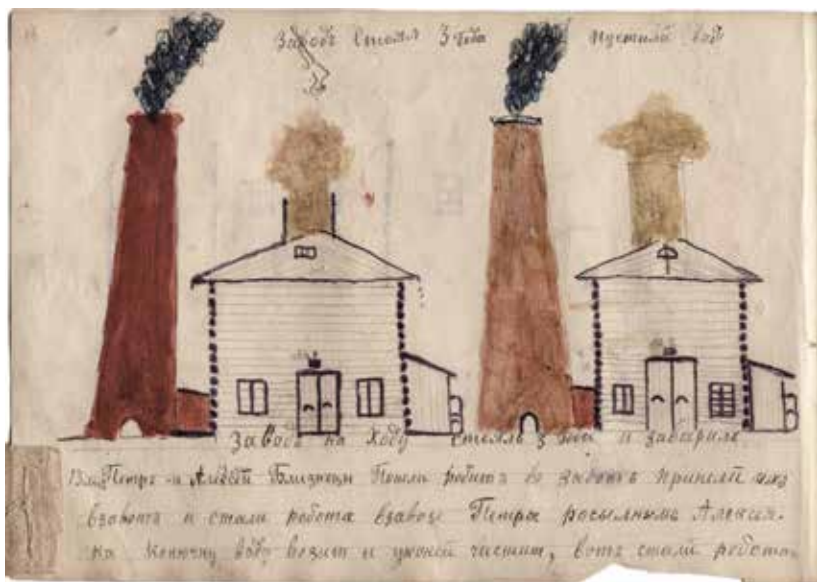 Заводъ Стоял 3 года пустили
Заводъ на ходу стоялъ 3 года и заварилъ
Петръ и Алексей Близнецы Пошли роботъ во заводъ принели их
взаводъ и стали робота взаводе Петра росыльнымъ Алексея.
на Конюшну воду возит и чистит, вотъ стали робота